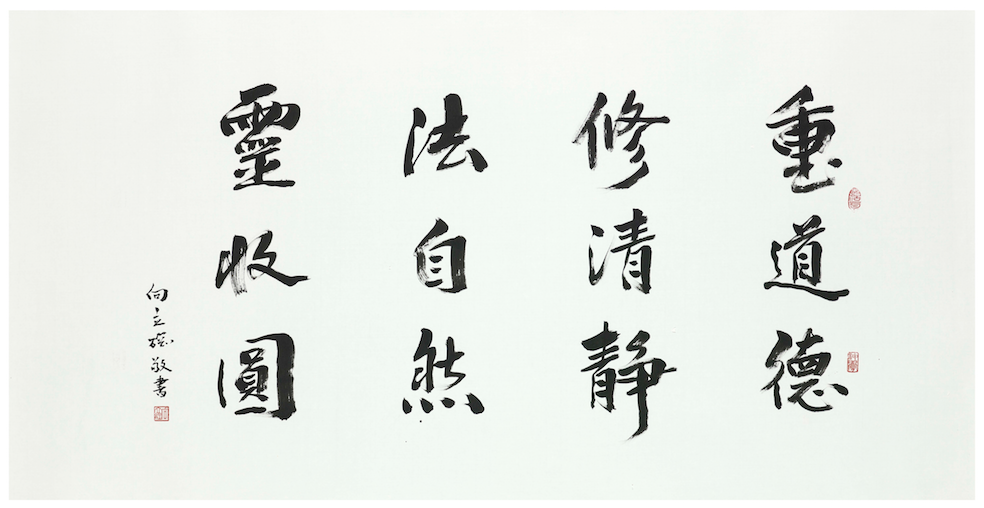 重道德
修清静
法自然
靈收圓
向立
敬書